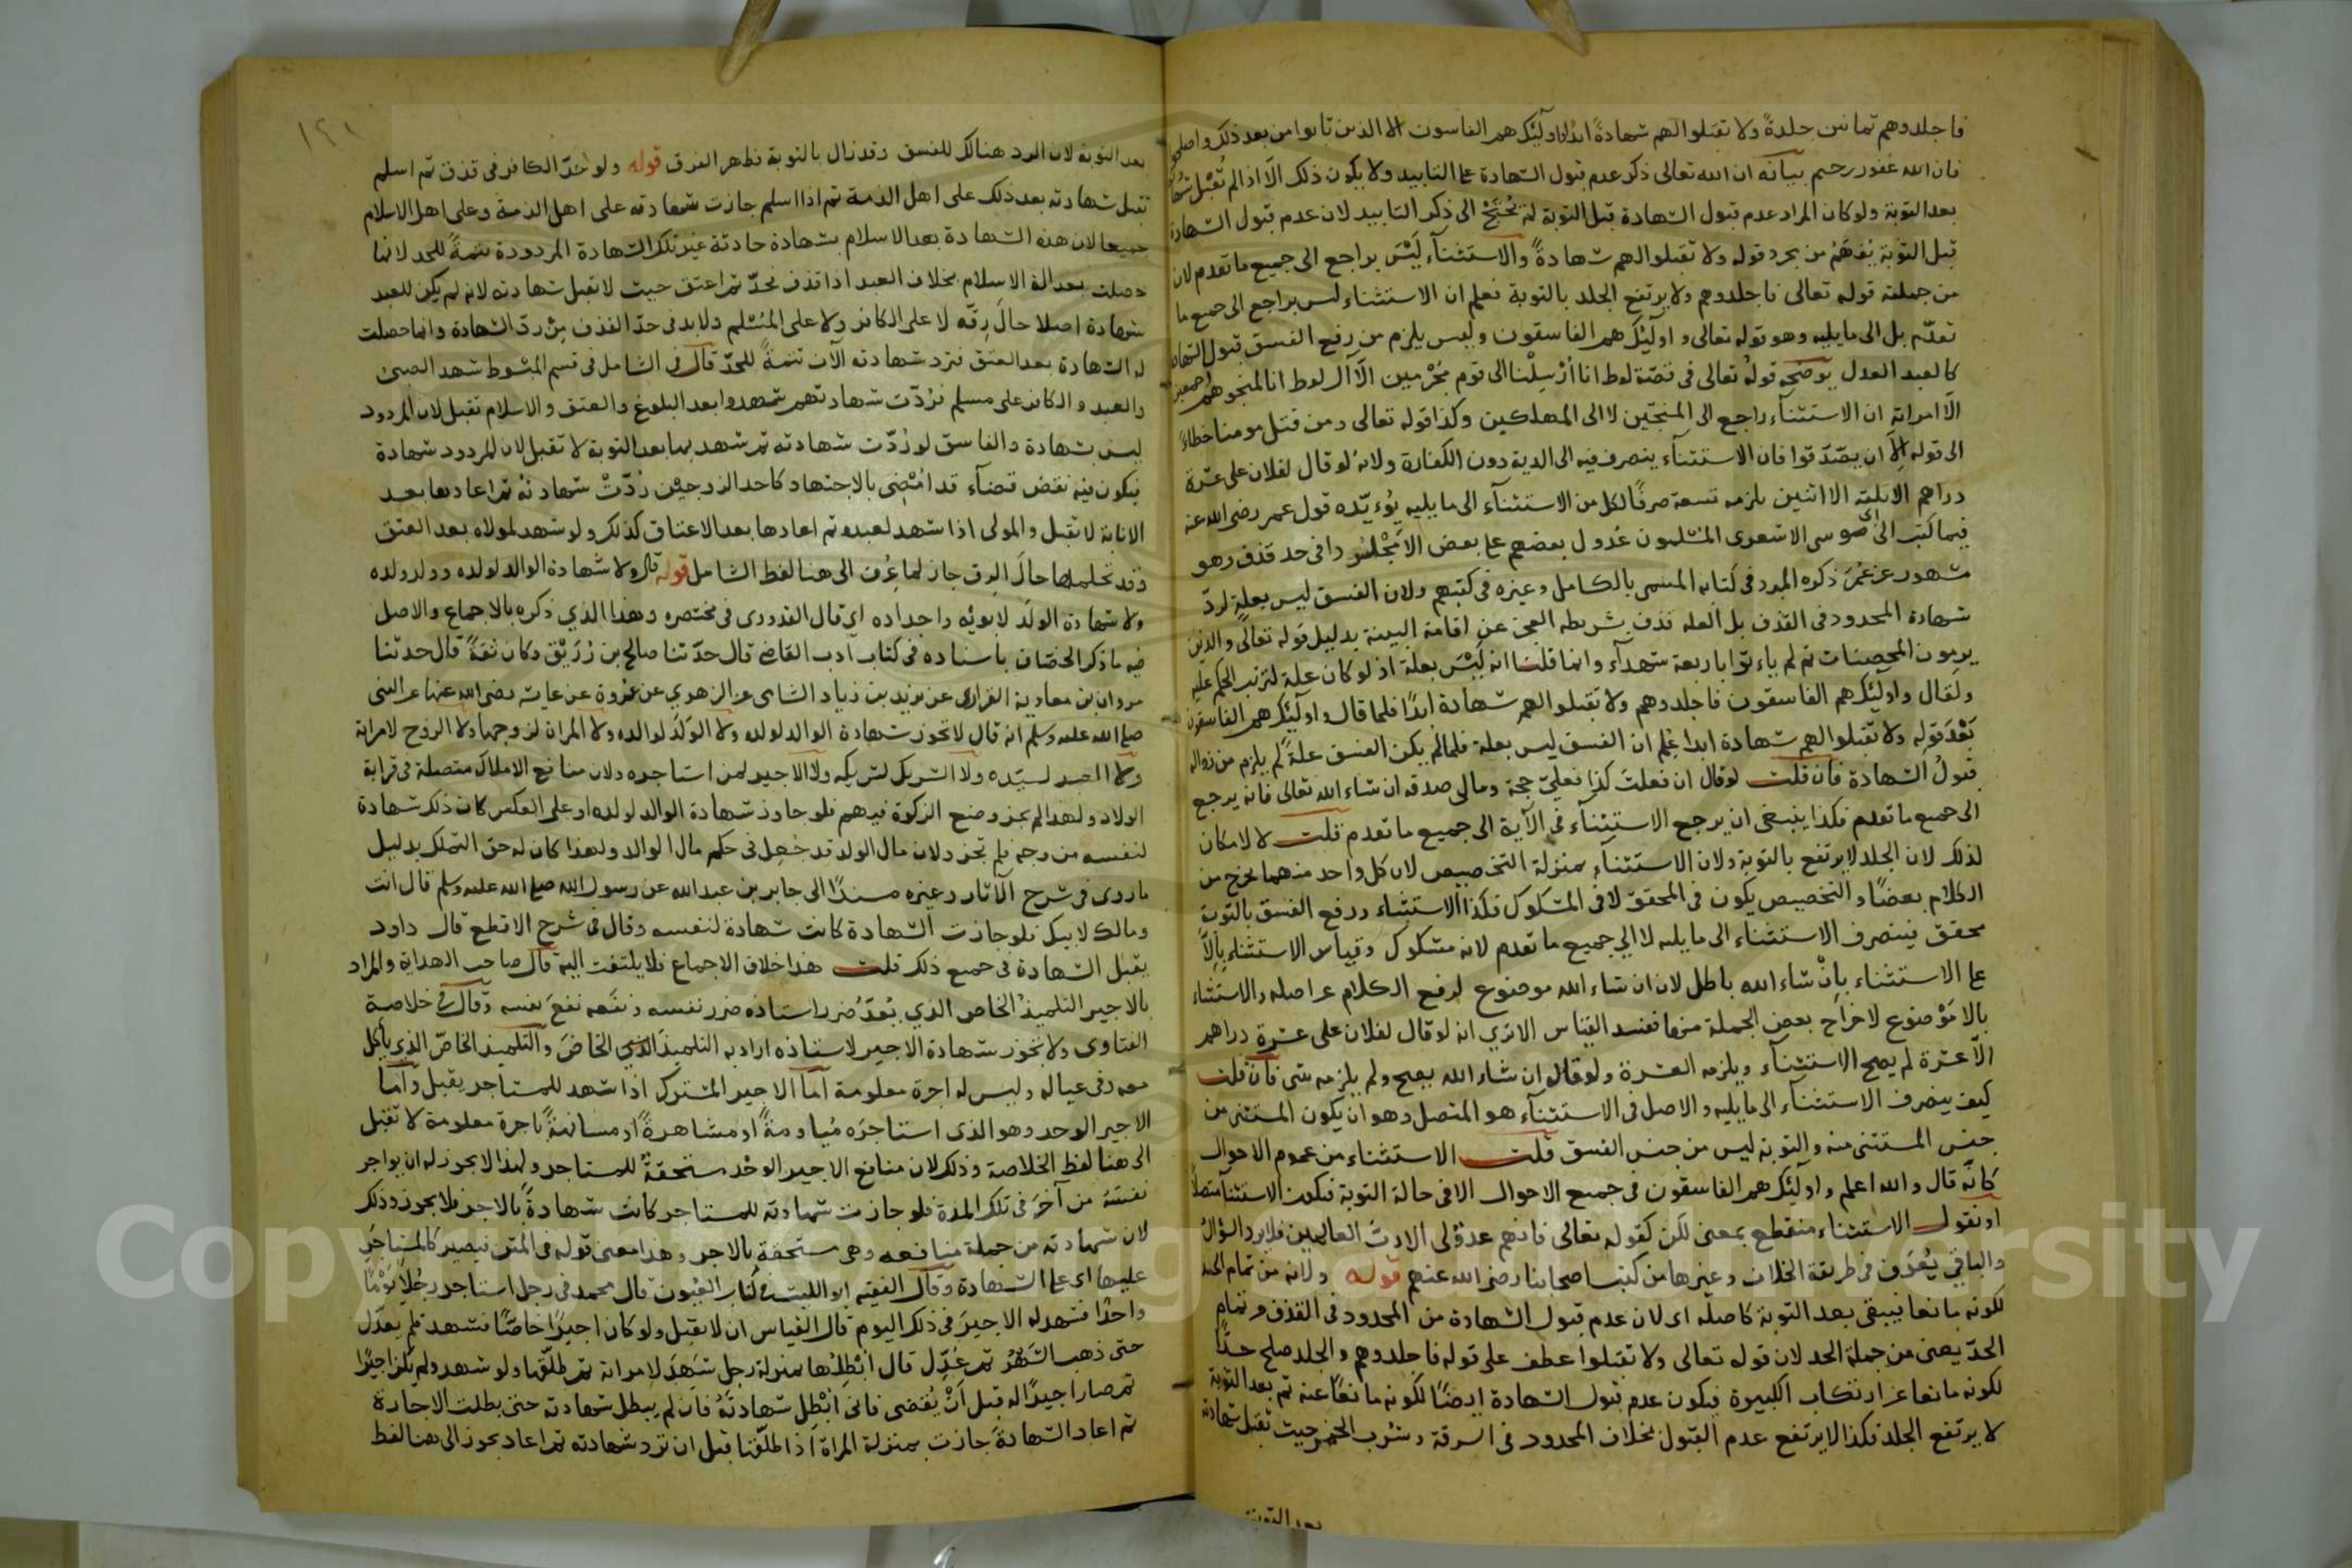 فاجلدوهم ثمانين جلدةً ولا تقبلوا لهم شهادةً ابدًا واولٓئك هم الفاسقون الا الذين تابوا من بعد ذلك واصلحوا
فان الله غفور رحيم بيانه ان الله تعالى ذكر عدم قبول الشهادة على التابيد ولا يكون ذلك الّا اذا لم تُقْبل
بعد التوبة ولو كان المراد عدم قبول الشهادة قبل التوبة لم يُحْتَجْ الى ذكر التابيد لان عدم قبول الشهادة
قبل التوبة يُفهَمُ من مجرد قوله ولا تقبلوا لهم شهادةً والاستثنآء لَيْسَ براجع الى جميع ما تقدم لان
من جملته قوله تعالى فاجلدوهم ولا يرتفع الجلد بالتوبة فعلم ان الاستثناء ليس براجع الى جميع ما
تقدّم بل الى ما يليه وهو قوله تعالى واولٓئك هم الفاسقون وليس يلزم من رفع الفسق قبول الشهادة
كالعبد العدل يوضحه قولهُ تعالى فى قصّة لوط انا اُرْسِلْنا الى قوم مجْرمين الّا آل لوط انا لمنجوهُمْ اجمعين
الّا امراته ان الاستثنآء راجع الى المنجّين لا الى المهلكين وكذا قوله تعالى ومن قتل مومنا خطاءً
الى قوله الّا ان يصّدّقوا فان الاستثنآء ينصرف فيه الى الدية دون الكفارة ولانهُ لو قال لفلان على عشرة
دراهم الا ثلثة الا اثنين يلزمه تسعة صرفًا لكل من الاستثنآء الى ما يليه يُوءيّده قول عمر رضى الله عنه
فيما كتب الى ابى موسى الاشعرى المسْلمون عُدُول بعضهم على بعض الا مَجْلُودا فى حد قذف وهو
مشهور عن عُمَر ذكره المبرد فى كتابه المسمى بالكامل وغيره فى كتبهم ولان الفسق ليس بعلةٍ لردّ
شهادة المحدود فى القذف بل العلة قذف بشريطه العجز عن اقامة البينة بدليل قوله تعالى والذين
يرمون المحصنات ثم لم ياءتوا باربعة شهدآء وانما قلنا انه ليْسَ بعلة اذ لو كان علة لترتب الحكم عليه
ولقال واولٓئك هم الفاسقون فاجلدوهم ولا تقبلوا لهم شهادة ابدًا فلما قال واولٓئك هم الفاسقون
بَعْدَ قوله ولا تقبلوا لهم شهادة ابدا عُلِم ان الفسق ليس بعلة فلما لم يكن الفسق علةً لم يلزم من زواله
قبولُ الشهادة فان قلت لو قال ان فعلتُ كذا فعليّ حجة ومالى صدقه ان شاء الله تعالى فانه يرجع
الى جميع ما تقدم فكذا ينبغى ان يرجع الاستثنآء فى الآية الى جميع ما تقدم قلت لا لامكان
لذلك لان الجلد لا يرتفع بالتوبة ولان الاستثنآء بمنزلة التخصيص لان كل واحد منهما يخرج من
الكلام بعضًا والتخصيص يكون فى المحقق لا فى المشكوك فكذا الاستثناء ورفع الفسق بالتوبة
محقق فينصرف الاستثناء الى ما يليه لا الى جميع ما تقدم لانه مشكوك وقياس الاستثناء بإلّا
على الاستثناء بانْ شاء الله باطل لان ان شاء الله موضوع لرفع الكلام عن اصله والاستثناء
بالا مَوْضوع لاخراج بعض الجملة منها ففسد القياس الا تري انه لو قال لفلان على عشرة دراهم
الّا عشرة لم يصح الاستثنآء ويلزمه العشرة ولو قال ان شاء الله يصح ولم يلزمه شى فان قلت
كيف ينصرف الاستثنآء الى ما يليه والاصل فى الاستثنآء هو المتصل وهو ان يكون المستثنى من
جنس المستثنى منه والتوبة ليس من جنس الفسق قلت الاستثناء من عموم الاحوال
كانّه قال والله اعلم واولٓئك هم الفاسقون فى جميع الاحوال الا فى حالة التوبة فيكون الاستثنآ متصلًا
او نقول الاستثناء منقطع بمعنى لكن كقوله تعالى فانهم عدوٌّ لى الا ربّ العالمين فلا يرد السؤالُ
والباقى يُعْرَف فى طريقة الخلاف وغيرها من كتب اصحابنا رضى الله عنهم قوله ولانه من تمام الحد
لكونه مانعا فيبقى بعد التوبة كاصله اى لان عدم قبول الشهادة من المحدود فى القذف من تمام
الحدّ يعنى من جملة الحد لان قوله تعالى ولا تقبلوا عطف على قوله فاجلدوهم والجلد صلح حدًّا
لكونه مانعا عن ارتكاب الكبيرة فيكون عدم قبول الشهادة ايضًا لكونه مانعًا عنه ثم بعد التوبة
لا يرتفع الجلد فكذا لا يرتفع عدم القبول بخلاف المحدود فى السرقة وشُرب الخمر حيث تقبل شهادته
بعد التوبة
١٢١
بعد التوبة لان الرد هنالك للفسق وقد زال بالتوبة فظهر الفرق قوله ولو حُدّ الكافر فى قذف ثم اسلم
تقبل شهادته بعد ذلك على اهل الذمة ثم اذا اسلم جازت شهادته على اهل الذمة وعلى اهل الاسلام
جميعا لان هذه الشهادة بعد الاسلام شهادة حادثة غير تلك الشهادة المردودة تتمةً للحد لانها
حصلت بعد الة الاسلام بخلاف العبد اذا قذف فحُدّ ثم اعتق حيث لا تقبل شهادته لانه لم يكن للعبد
شهادة اصلا حالَ رِقّه لا على الكافر ولا على المُسْلم ولا بد فى حدّ القذف مِنْ ردّ الشهادة وانما حصلت
له الشهادة بعد العتق فترد شهادته الآن تتمةً للحدّ قال فى الشامل فى قسم المبْسُوط شهد الصبى
والعبد والكافر على مسلم فرُدّت شهادتهم ثم شهدوا بعد البلوغ والعتق والاسلام تقبل لان المردود
ليس بشهادة والفاسق لو رُدّت شهادته ثم شهد بها بعد التوبة لا تقبل لان المردود شهادة
فيكون فيه نقض قضآء قد امُضِى بالاجتهاد كاحد الزوجيْن رُدّتْ شهادتهُ ثم اعادها بعد
الابانة لا تقبل والمولى اذا شهد لعبده ثم اعادها بعد الاعتاق كذلك ولو شهد لمولاه بعد العتق
وقد تحملها حالَ الرق جاز لما عُرف الى هنا لفظ الشامل قوله قال ولا شهادة الوالد لولده وولد ولده
ولا شهادة الولد لابوَيْه واجداده اى قال القدورى فى مختصره وهذا الذي ذكره بالاجماع والاصل
فيه ما ذكر الخصّاف باسناده فى كتاب ادب القاضى قال حدّثنا صالح بن زُرَيْق وكان ثقةً قال حدثنا
مروان بن معاوية الفزارى عن يزيد بن زياد الشامى عن الزهري عن عُروة عن عايشه رضى الله عنها عن النبى
صلى الله عليه وسلم انه قال لا تجوز شهادة الوالد لولده ولا الوَلَد لوالده ولا المراة لزوجها ولا الزوج لامراته
ولا العبد لسيّده ولا الشريك لشريكه ولا الاجير لمن استاجره ولان منافع الاملاك متصلة فى قرابة
الولاد ولهذا لم يجز وضع الزكوة فيهم فلو جازت شهادة الوالد لولده او على العكس كان ذلك شهادة
لنفسه من وجه فلم تجز ولان مال الولد قد جُعِل فى حكم مال الوالد ولهذا كان له حق التملك بدليل
ما روى فى شرح الآثار وغيره مسندًا الى جابر بن عبد الله عن رسول الله صلى الله عليه وسلم قال انت
ومالك لابيك فلو جازت الشهادة كانت شهادة لنفسه وقال فى شرح الاقطع قال داود
يقبل الشهادة فى جميع ذلك قلت هذا خلاف الاجماع فلا يلتفت اليه قال صاحب الهداية والمراد
بالاجير التلميذُ الخاص الذي يُعَدّ ضرر استاذه ضرر نفسه ونفعه نفعَ نفسه وقال فى خلاصة
الفتاوى ولا تجوز شهادة الاجير لاستاذه اراد به التلميذ الذي الخاصَ والتلميذ الخاصّ الذي ياكل
معه وفى عياله وليس له اجرة معلومة امّا الاجير المشترك اذا شهد للمستاجر يقبل وامّا
الاجير الوحد وهو الذى استاجرَه مُياومةً او مشاهرةً او مسانهةً باجرة معلومة لا تقبل
الى هنا لفظ الخلاصة وذلك لان منافع الاجير الوحْد مستحقةٌ للمستاجر ولهذا لا يجوز له ان يواجر
نفسَه من آخر فى تلك المدة فلو جازت شهادته للمستاجر كانت شهادةً بالاجر فلا يجوز وذلك
لان شهادته من جملة منافعه وهى مستحقة بالاجر وهذا معنى قوله فى المتن فيصير كالمستاجَر
عليها اى على الشهادة وقال الفقيه ابو الليث فى كتاب العُيون قال محمد فى رجل استاجر رجُلًا يَوْمًا
واحدًا فشهد له الاجيرَ فى ذلك اليوم قال القياس ان لا يقبل ولو كان اجيرًا خاصًّا فشهد فلم يعدّل
حتى ذهب الشَهْرُ ثم عُدِّل قال اُبْطِلُها بمنزلة رجل شَهِدَ لامراته ثم طلّقها ولو شهد ولم يكن اجيرًا
ثم صار اجيرًا له قبل اَنْ يُقضى فانى اُبْطِل شهادتَهُ فان لم يبطل شهادته حتى بطلت الاجارة
ثم اعاد الشهادة جازت بمنزلة المراة اذا طلّقها قبل ان ترد شهادته ثم اعاد يجوز الى هنا لفظ